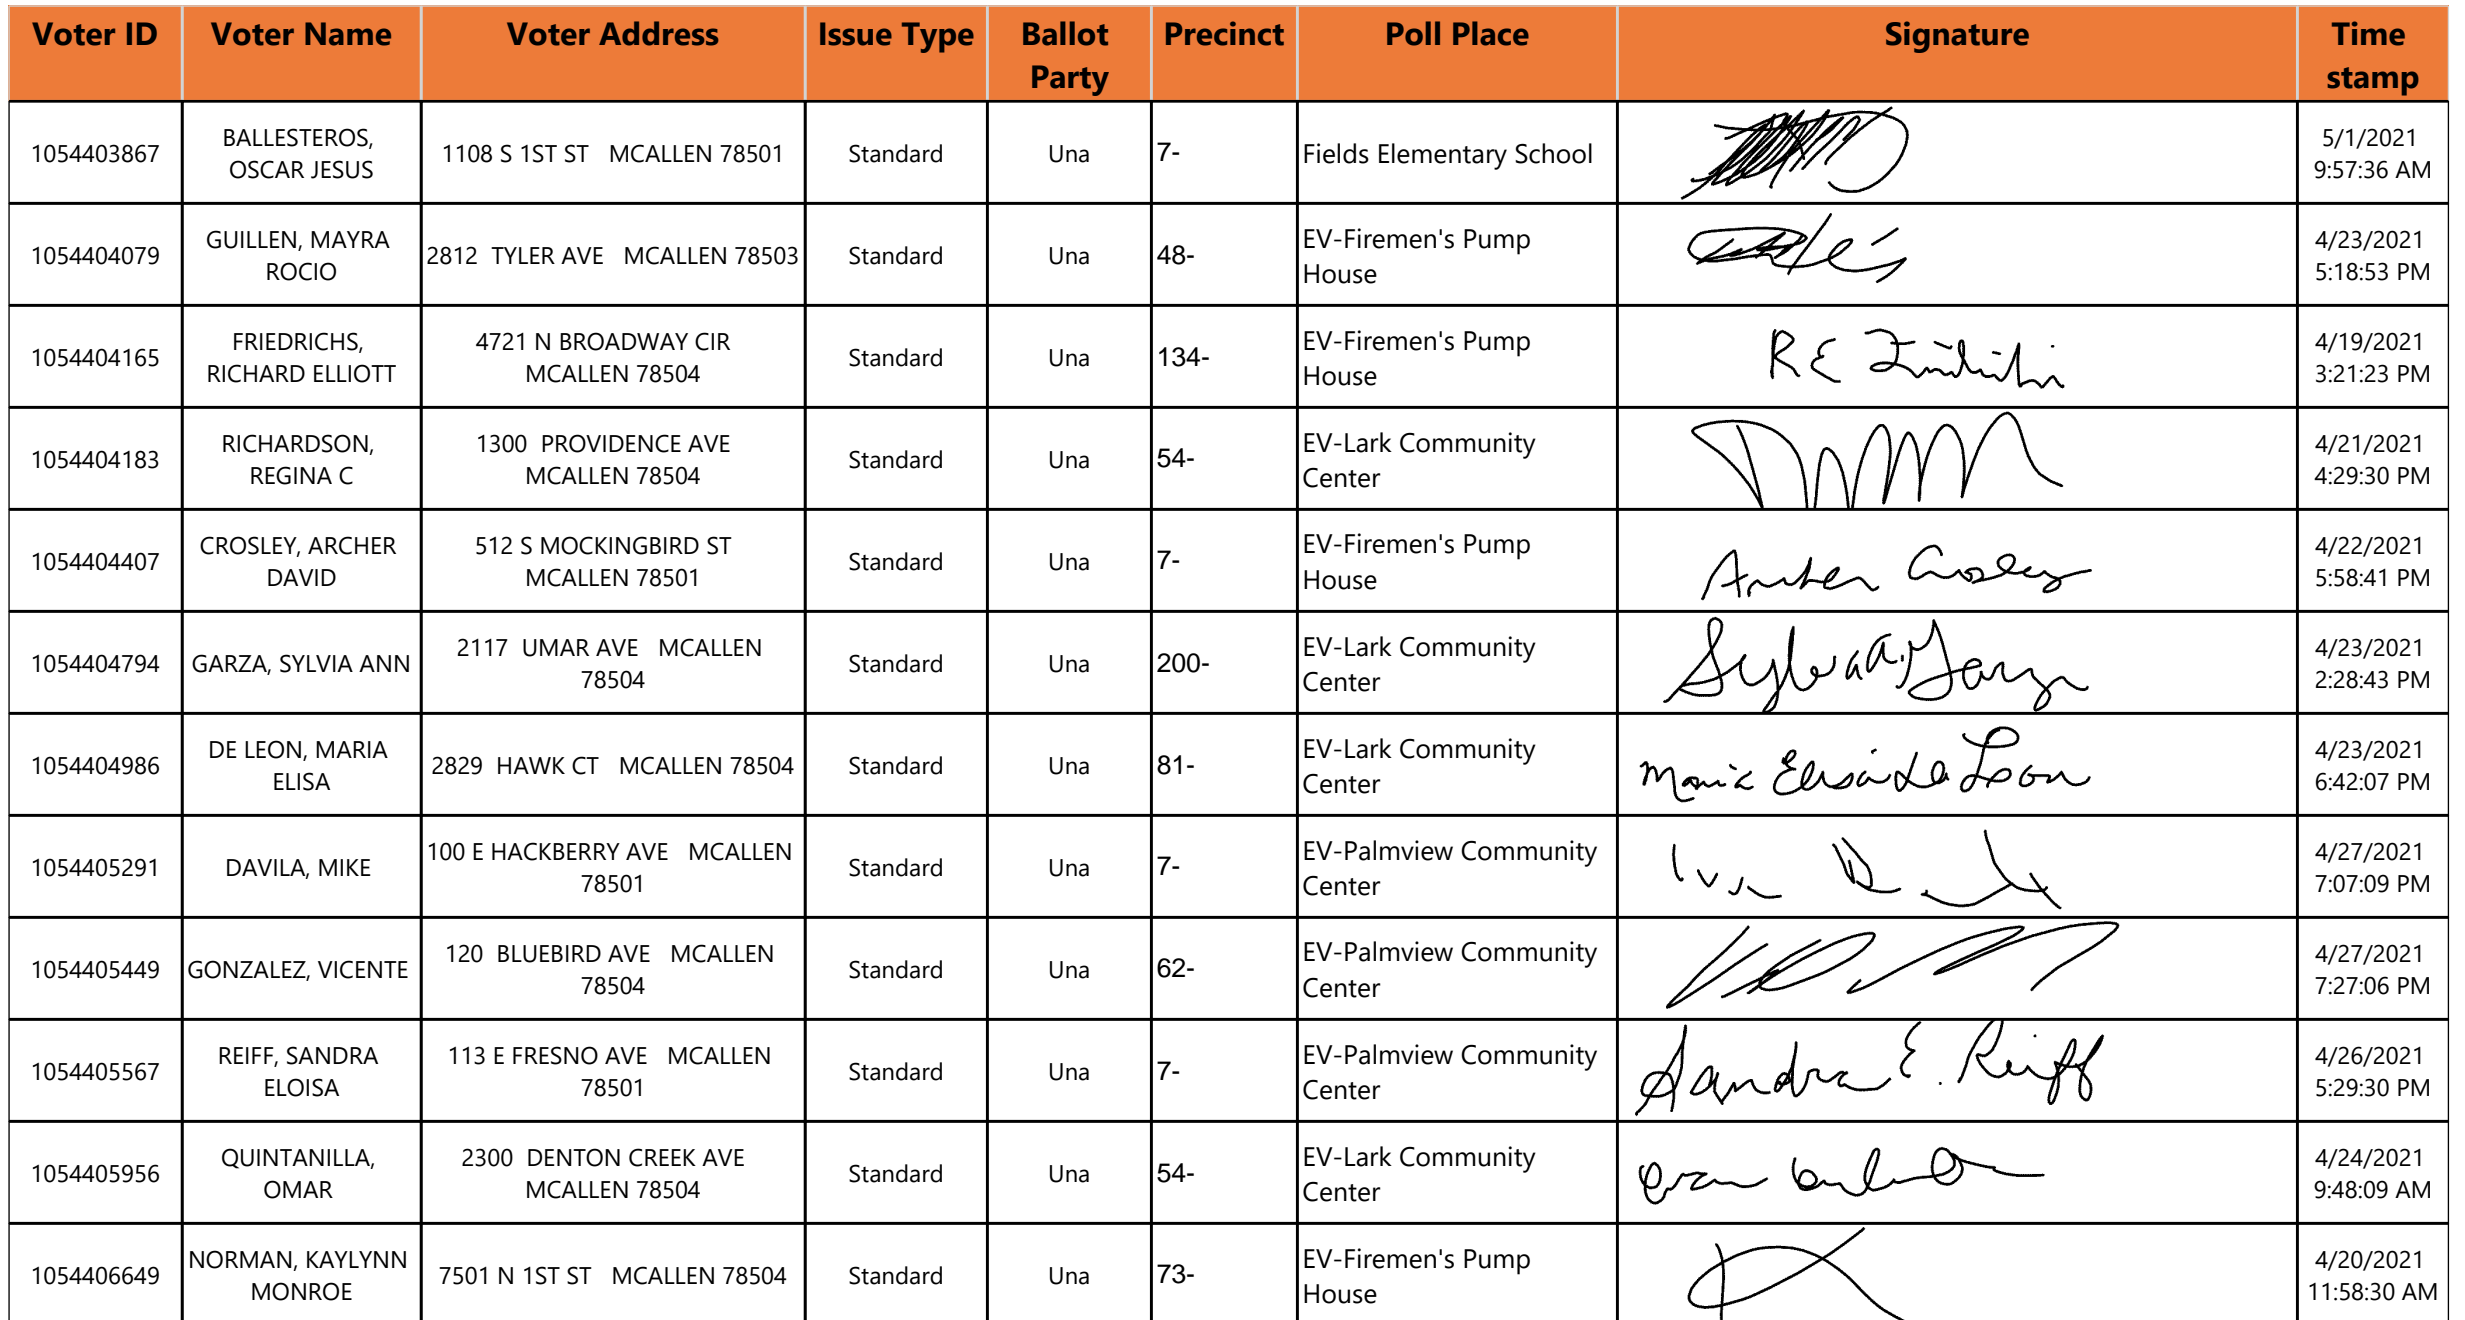 Voter ID Voter Name Voter Address Issue Type Ballot Party Precinct Poll Place Signature Time stamp
1054403867 BALLESTEROS, OSCAR JESUS 1108 S 1ST ST MCALLEN 78501 Standard Una 7- Fields Elementary School 5/1/2021 9:57:36 AM
1054404079 GUILLEN, MAYRA ROCIO 2812 TYLER AVE MCALLEN 78503 Standard Una 48- EV-Firemen's Pump House 4/23/2021 5:18:53 PM
1054404165 FRIEDRICHS, RICHARD ELLIOTT 4721 N BROADWAY CIR MCALLEN 78504 Standard Una 134- EV-Firemen's Pump House R E 4/19/2021 3:21:23 PM
1054404183 RICHARDSON, REGINA C 1300 PROVIDENCE AVE MCALLEN 78504 Standard Una 54- EV-Lark Community Center 4/21/2021 4:29:30 PM
1054404407 CROSLEY, ARCHER DAVID 512 S MOCKINGBIRD ST MCALLEN 78501 Standard Una 7- EV-Firemen's Pump House Archer Crosley 4/22/2021 5:58:41 PM
1054404794 GARZA, SYLVIA ANN 2117 UMAR AVE MCALLEN 78504 Standard Una 200- EV-Lark Community Center Sylvia A. Garza 4/23/2021 2:28:43 PM
1054404986 DE LEON, MARIA ELISA 2829 HAWK CT MCALLEN 78504 Standard Una 81- EV-Lark Community Center Maria Elisa de Leon 4/23/2021 6:42:07 PM
1054405291 DAVILA, MIKE 100 E HACKBERRY AVE MCALLEN 78501 Standard Una 7- EV-Palmview Community Center 4/27/2021 7:07:09 PM
1054405449 GONZALEZ, VICENTE 120 BLUEBIRD AVE MCALLEN 78504 Standard Una 62- EV-Palmview Community Center 4/27/2021 7:27:06 PM
1054405567 REIFF, SANDRA ELOISA 113 E FRESNO AVE MCALLEN 78501 Standard Una 7- EV-Palmview Community Center Sandra E. Reiff 4/26/2021 5:29:30 PM
1054405956 QUINTANILLA, OMAR 2300 DENTON CREEK AVE MCALLEN 78504 Standard Una 54- EV-Lark Community Center 4/24/2021 9:48:09 AM
1054406649 NORMAN, KAYLYNN MONROE 7501 N 1ST ST MCALLEN 78504 Standard Una 73- EV-Firemen's Pump House 4/20/2021 11:58:30 AM